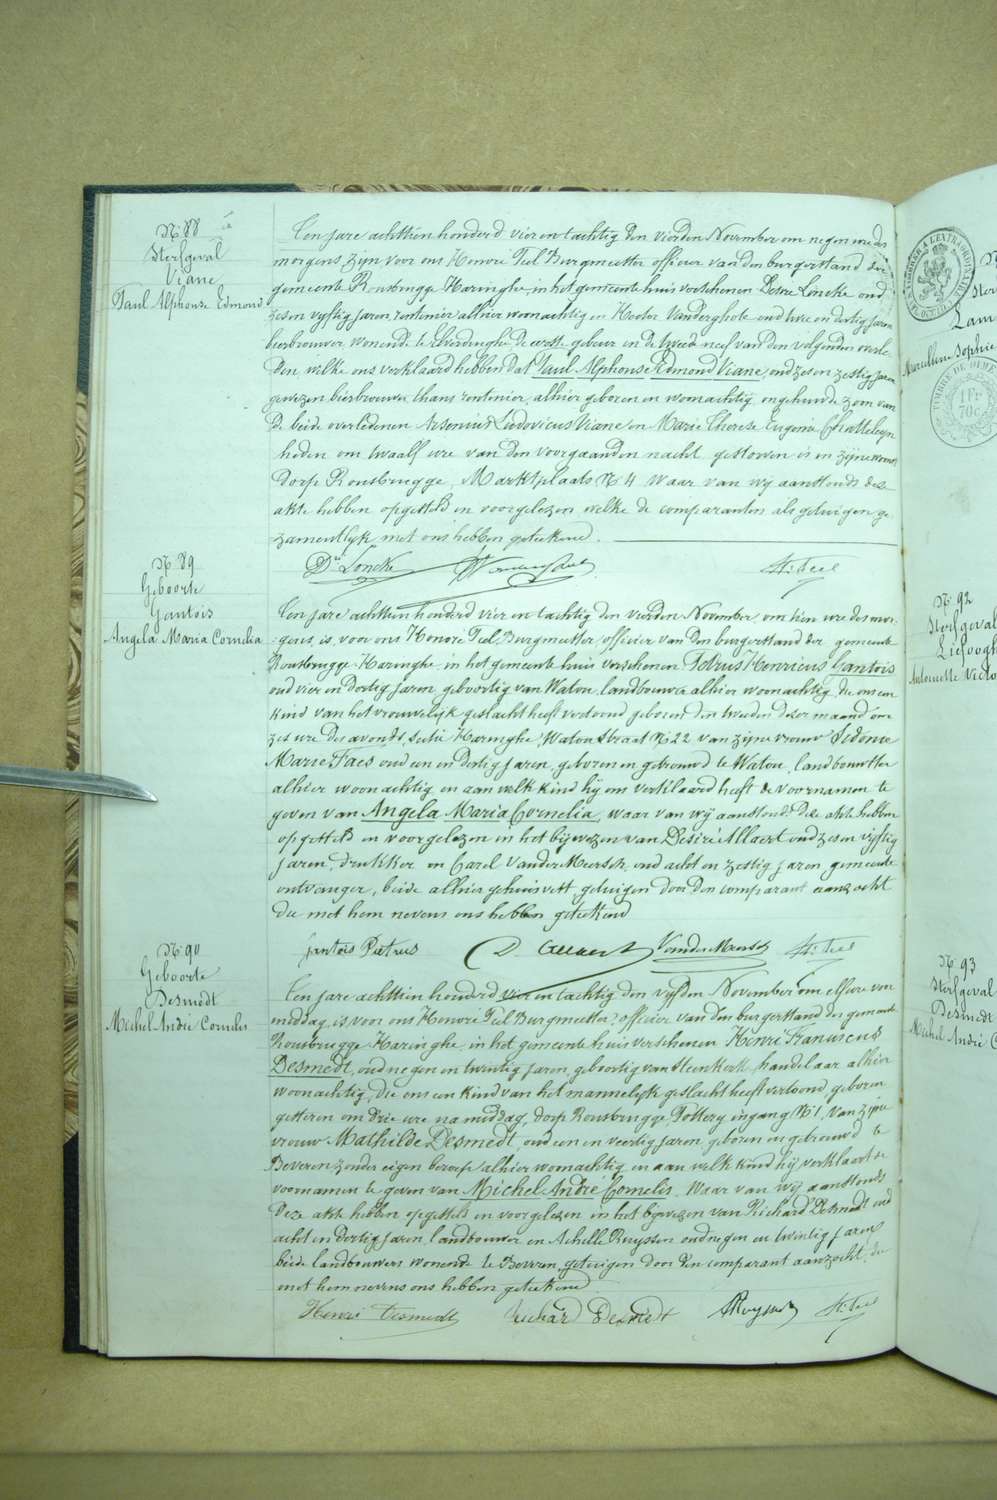 N. 88
Sterfgeval
Viane
Paul Alphonse Edmond
Een jare achttien honderd vier en tachtig den vierden November om negen ure des
morgens zijn voor ons Honoré Teel Burgmeester officier van den burgerstand der
gemeente Rousbrugge-Haringhe, in het gemeente huis verschenen Desiré Loncke oud
zes en vyftig jaren rentenier alhier woonachtig en Hector Vanderghote oud twee en dertig jaren
bierbrouwer wonende te Elverdinghe de eerste gebuur en de tweede neef van den volgenden overle-
den, welke ons verklaard hebben dat Paul Alphonse Edmond Viane, oud zes en zestig jaren
gewezen bierbrouwer thans rentenier, alhier geboren en woonachtig, ongehuwde zoon van
de beide overledenen Arsenius Ludovicus Viane en Marie Therese Eugenie Chatteleyn
heden om twaalf ure van den voorgaanden nacht gestorven is in zijne woonst
Dorp Rousbrugge, Marktplaats N. 4 waar van wij aanstonds deze
akte hebben opgesteld en voorgelezen welke de comparanten als getuigen ge-
zamentlyk met ons hebben geteekend.
Dré Loncke
H. Teel
N. 89
Geboorte
Gantois
Angela Maria Cornelia
Een jare achttien honderd vier en tachtig den vierden November om tien ure des mor-
gens, is voor ons Honoré Teel Burgmeester, officier van den burgerstand der gemeente
Rousbrugge-Haringhe, in het gemeente huis verschenen Petrus Henricus Gantois
oud vier en dertig jaren, geboortig van Watou, landbouwer alhier woonachtig, die ons een
kind van het vrouwelyk geslacht heeft vertoond, geboren den tweeden dezer maand om
zes ure des avonds, sectie Haringhe, Watou straat N. 22 van zyne vrouw Sidonie
Marie Faes oud een en dertig jaren, geboren en getrouwd te Watou, landbouwster
alhier woonachtig en aan welk kind hij ons verklaard heeft de voornamen te
geven van Angela Maria Cornelia, waar van wij aanstonds deze akte hebben
opgesteld en voorgelezen in het bijwezen van Desiré Allaert oud zes en vyftig
jaren, drukker en Carel Vander Meersch, oud acht en zestig jaren gemeente
ontvanger, beide alhier gehuisvest getuigen door den comparant aanzocht
die met hem nevens ons hebben geteekend
Gantois Pietrus
D. Allaert
Vander Meersch
H. Teel
N. 90
Geboorte
Desmedt
Michel André Cornelis
Een jare achttien honderd vier en tachtig den vyfden November om elf ure voor
middag, is voor ons Honoré Teel Burgmeester, officier van den burgerstand der gemeente
Rousbrugge-Haringhe, in het gemeente huis verschenen Henri Franciscus
Desmedt, oud negen en twintig jaren, geboortig van Steenkerk, handelaar alhier
woonachtig, die ons een kind van het mannelyk geslacht heeft vertoond, geboren
gisteren om drie ure na middag, dorp Rousbrugge, Pottery ingang N. 1, van zijne
vrouw Mathilde Desmedt, oud een en veertig jaren, geboren en getrouwd te
Beveren zonder eigen beroep alhier woonachtig en aan welk kind hij verklaart de
voornamen te geven van Michel André Cornelis, waar van wij aanstonds
deze akte hebben opgesteld en voorgelezen in het bijwezen van Richard Desmedt oud
acht en dertig jaren landbouwer en Achille Ruyssen oud negen en twintig jaren
beide landbouwers wonende te Beveren, getuigen door den comparant aanzocht, die
met hem nevens ons hebben geteekend
Henri Desmedt
Richard Desmedt
A Ruyssen
H. Teel
Lam
Marcelline Sophie
TIMBRE DE DIME
1 Fr
70 c
N. 92
Sterfgeval
Liefoogh
Antoinette Victo
N. 93
Sterfgeval
Desmedt
Michel André C